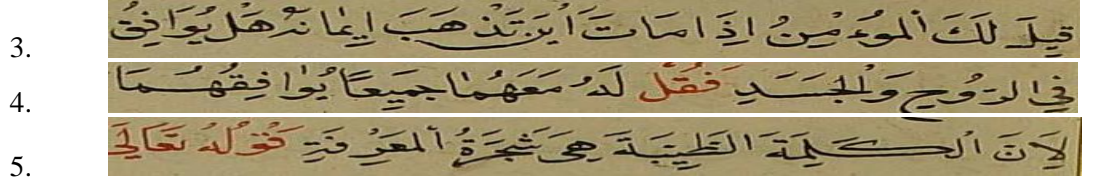 3. قِيلَ لَكَ الْمُوءْمِنُ اِذَا مَاتَ اَيْنَ تَذْهَبَ اِيمَانُهُ هَلْ يُوَافِقُ
4. فِي الرُّوحِ وَالْجَسَدِ فَقُلْ لَهُ مَعَهُمَا جَمِيعًا يُوَافِقُهُمَا
5. لِاَنَّ الْكَلِمَةَ الطَّيِّبَةَ هِيَ شَجَرَةُ الْمَعْرِفَةِ قَوْلُهُ تَعَالَى